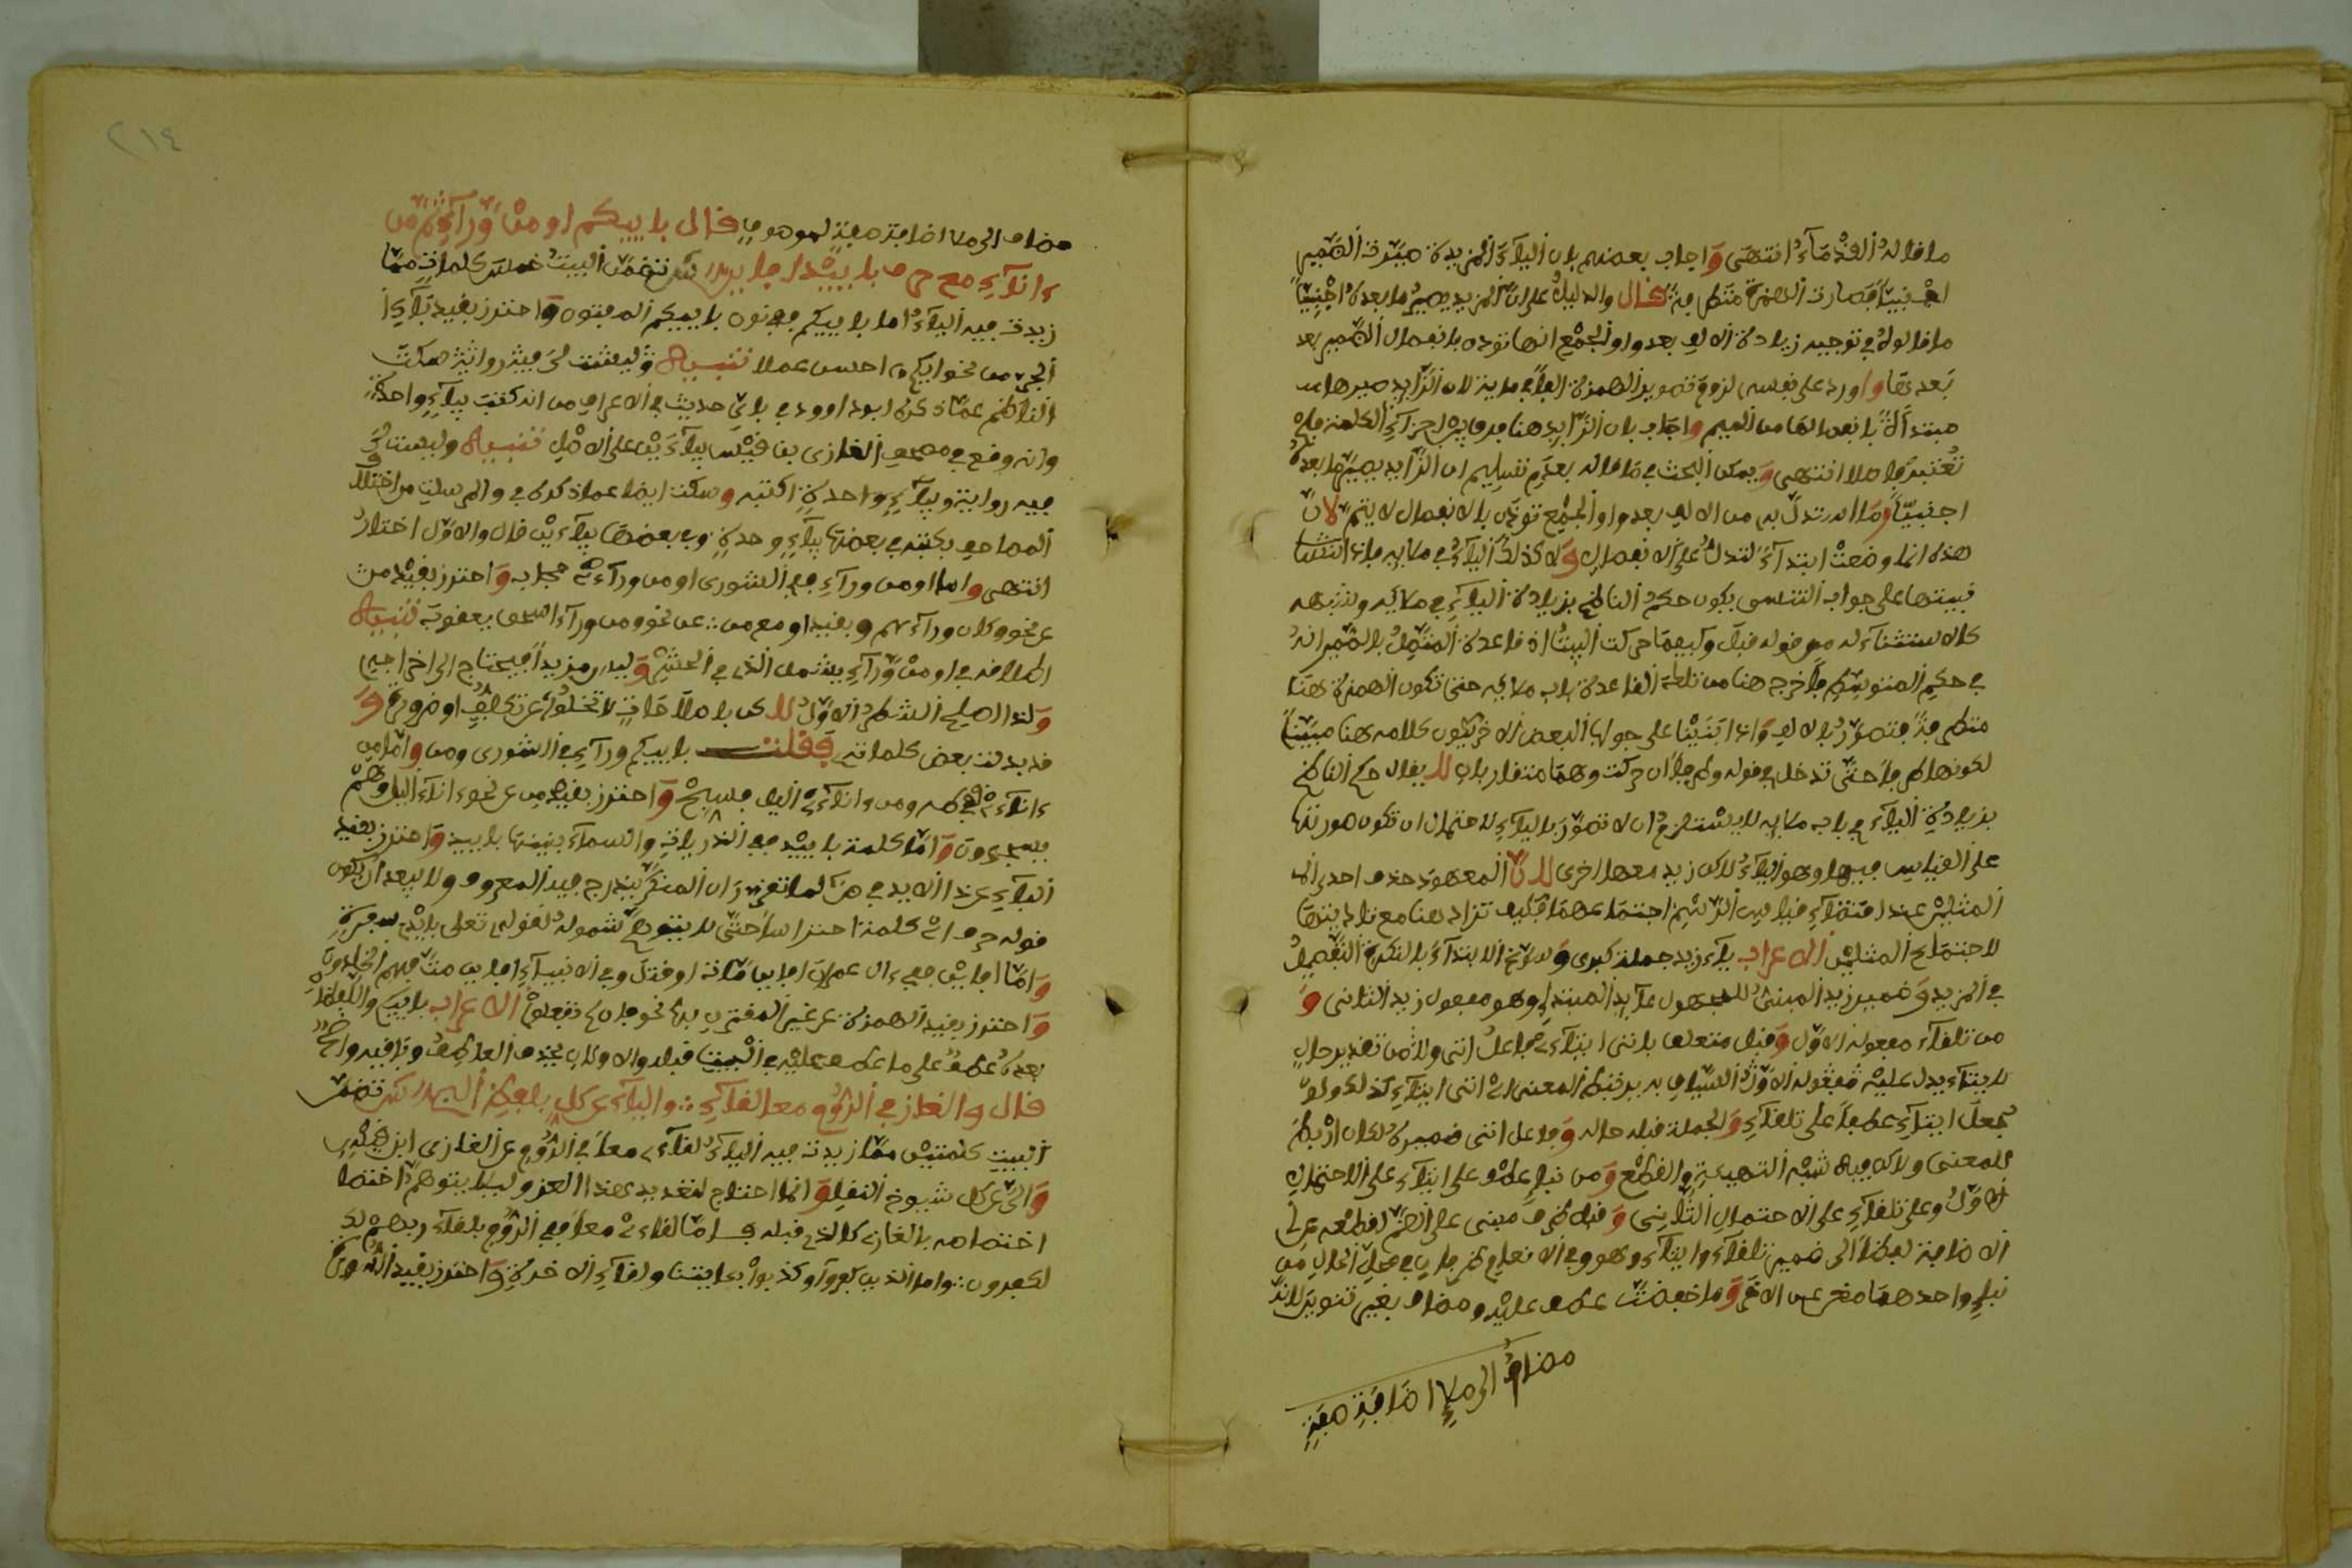 ما قاله القدماء انتهى واجاب بعضهم بان الياء المزيدة صيرت الضمير
اجنبيا فصارت الهمزة متطرفة قال والدليل على ان المزيد يصير ما بعده اجنبيا
ما قالوه في توجيه زيادة الالف بعد واو الجمع انها تؤذن بانفصال الضمير بعد
بعدها واورد على نفسه لزوم تصوير الهمزة الفا في مائة لان الزائد صيرها
مبتدأة بانفصالها من الميم واجاب بان الزائد هنا فرق بين اجزاء الكلمة فلم
تعتبر فاصلا انتهى ويمكن البحث في ما قاله بعدم تسليم ان الزائد يصير ما بعده
اجنبيا وما استدل به من الالف بعد واو الجمع تؤذن بالانفصال لا يتم لان
هذه انما وضعت ابتداء لتدل على الانفصال ولا كذلك الياء في ملايه فاذا
فبيتها على جواب التنسي يكون حكم الناظم بزيادة الياء في ملايه ونحوه
كالاستثناء له من قوله قبل وكيفما حركت البيت اذ قاعدة المتصل بالضمير انه
في حكم المتوسط فاخرج هنا من تلك القاعدة باب ملايه حتى تكون الهمزة هنا
متطرفة فتصور بالالف واذا ابنينا على جواب البعض الاخر يكون كلامه هنا مبينا
لكونها طرفا حتى تدخل في قوله وطرفا ان حركت وهما متقاربان لا يقال حكم الناظم
بزيادة الياء في باب ملايه لا يستلزم ان لا تصور بالياء لاحتمال ان تكون صورتها
على القياس فيها وهو الياء لاكن زيد معها اخرى لانا المعهود حذف احدى
المثلين عند اقتضاء قياس الرسم اجتماعهما فكيف تزاد هنا مع تاديتها
لاجتماع المثلين الاعراب ياء زيد جملة كبرى وسوغ الابتداء بالنكرة التفصيل
في المزيد وضمير زيد المبني للمجهول عائد المبتدا وهو مفعول زيد الثاني و
من تلقاء مفعوله الاول وقبل متعلق باتى ايتاء فاعل اتى ولا من تقدير حال
لايتاء يدل عليه مفعوله الاول السياق به يرتبط المعنى اي اتى ايتاء كذلك ولو
جعل ايتاء عطفا على تلقاء والجملة قبله حاله وفاعل اتى ضميره لكان اربط
للمعنى ولاكن فيه شبه التهيئة والقطع ومن نبإ عطف على ايتاء على الاحتمال
الاول وعلى تلقاء على الاحتمال الثاني وقبل ظرف مبني على الضم لقطعه عن
الاضافة لفظا الى ضمير تلقاء وايتاء وهو وفي الانعام ظرفان في محل الحال من
نبإ واحدهما مغن عن الاخر وما خفضت عطف عليه ومضاف بغير تنوين لانه
مضاف الى ملا اضافة صفة
مضاف الى ملا اضافة صفة لموصوف قال باييكم او من وراءي ثم من
ءاناءي مع حرف باييد افاين لكن تضمن البيت خمس كلمات مما
زيدت فيه الياء اما باييكم ففي نون باييكم المفتون واحترز بقيد باء
الجر من نحو ايكم احسن عملا تنبيه وليست لي فيه رواية سكت
الناظم عما ذكره ابو داوود في باي حديث في الاعراف من انه كتب بياء واحدة
وانه وقع في مصحف الغازي بن قيس بياءين على الاصل تنبيه وليست لي
فيه رواية وبياء واحدة اكتبه وسكت ايضا عما ذكره في والمرسلت من اختلاف
المصاحف بكتبه في بعضها بياء وحدة وفي بعضها بياءين قال والاول اختار
انتهى واما او من وراء ففي الشورى او من وراءي حجاب واحترز بقيد من
عن نحو وكان وراءهم وبقيد او مع من عن نحو ومن وراء اسحق يعقوب تنبيه
اطلاقه في او من وراء يشمل الذي في الحشر وليس مزيدا فيحتاج الى اخراجه
ولذا اصلح الشطر الاول لاكن باصلاحات لا تخلوا عن تكلف او ضرورة و
قد بدلت بعض كلماته فقلت باييكم وراءي في الشورى ومن واما من
ءاناءي ففي طه ومن ءاناءي اليل فسبح واحترز بقيد من عن نحو ءاناء اليل وهم
يسجدون واما كلمة باييد ففي الذريات والسماء بنينها باييد واحترز بقيد
الباء عن ذا الايد في ص لما تقرر ان المنكر يندرج فيه المعرف ولا يبعد ان يكون
قوله حرف اي كلمة احترازا حتى لا يتوهم شموله لقوله تعلى بايدي سفرة
واما افاين ففي ءال عمرن افاين مات او قتل وفي الانبياء افاين مت فهم الخلدون
واحترز بقيد الهمزة عن غير المقترن بها نحو فان لم تفعلوا الاعراب باييكم والالفاظ
بعده عطف على ما عطف عليه في البيت قبله والاولان بحذف العاطف وباقيه واضح
قال والغاز في الروم معا لقاءي والياء عن كل بلفظ الى لكن تضمن
البيت كلمتين مما زيدت فيه الياء لقاءي معا في الروم عن الغازي ابن قيس
والى عن كل شيوخ النقل وانما احتاج لتقديم هذا العزو ليلا يتوهم اختصا
اختصاصه بالغاز كالذي قبله فاما لقاءي معا ففي الروم بلقاء ربهم
لكفرون واما الذين كفروا وكذبوا بءايتنا ولقاء الاخرة واحترز بقيد الروم